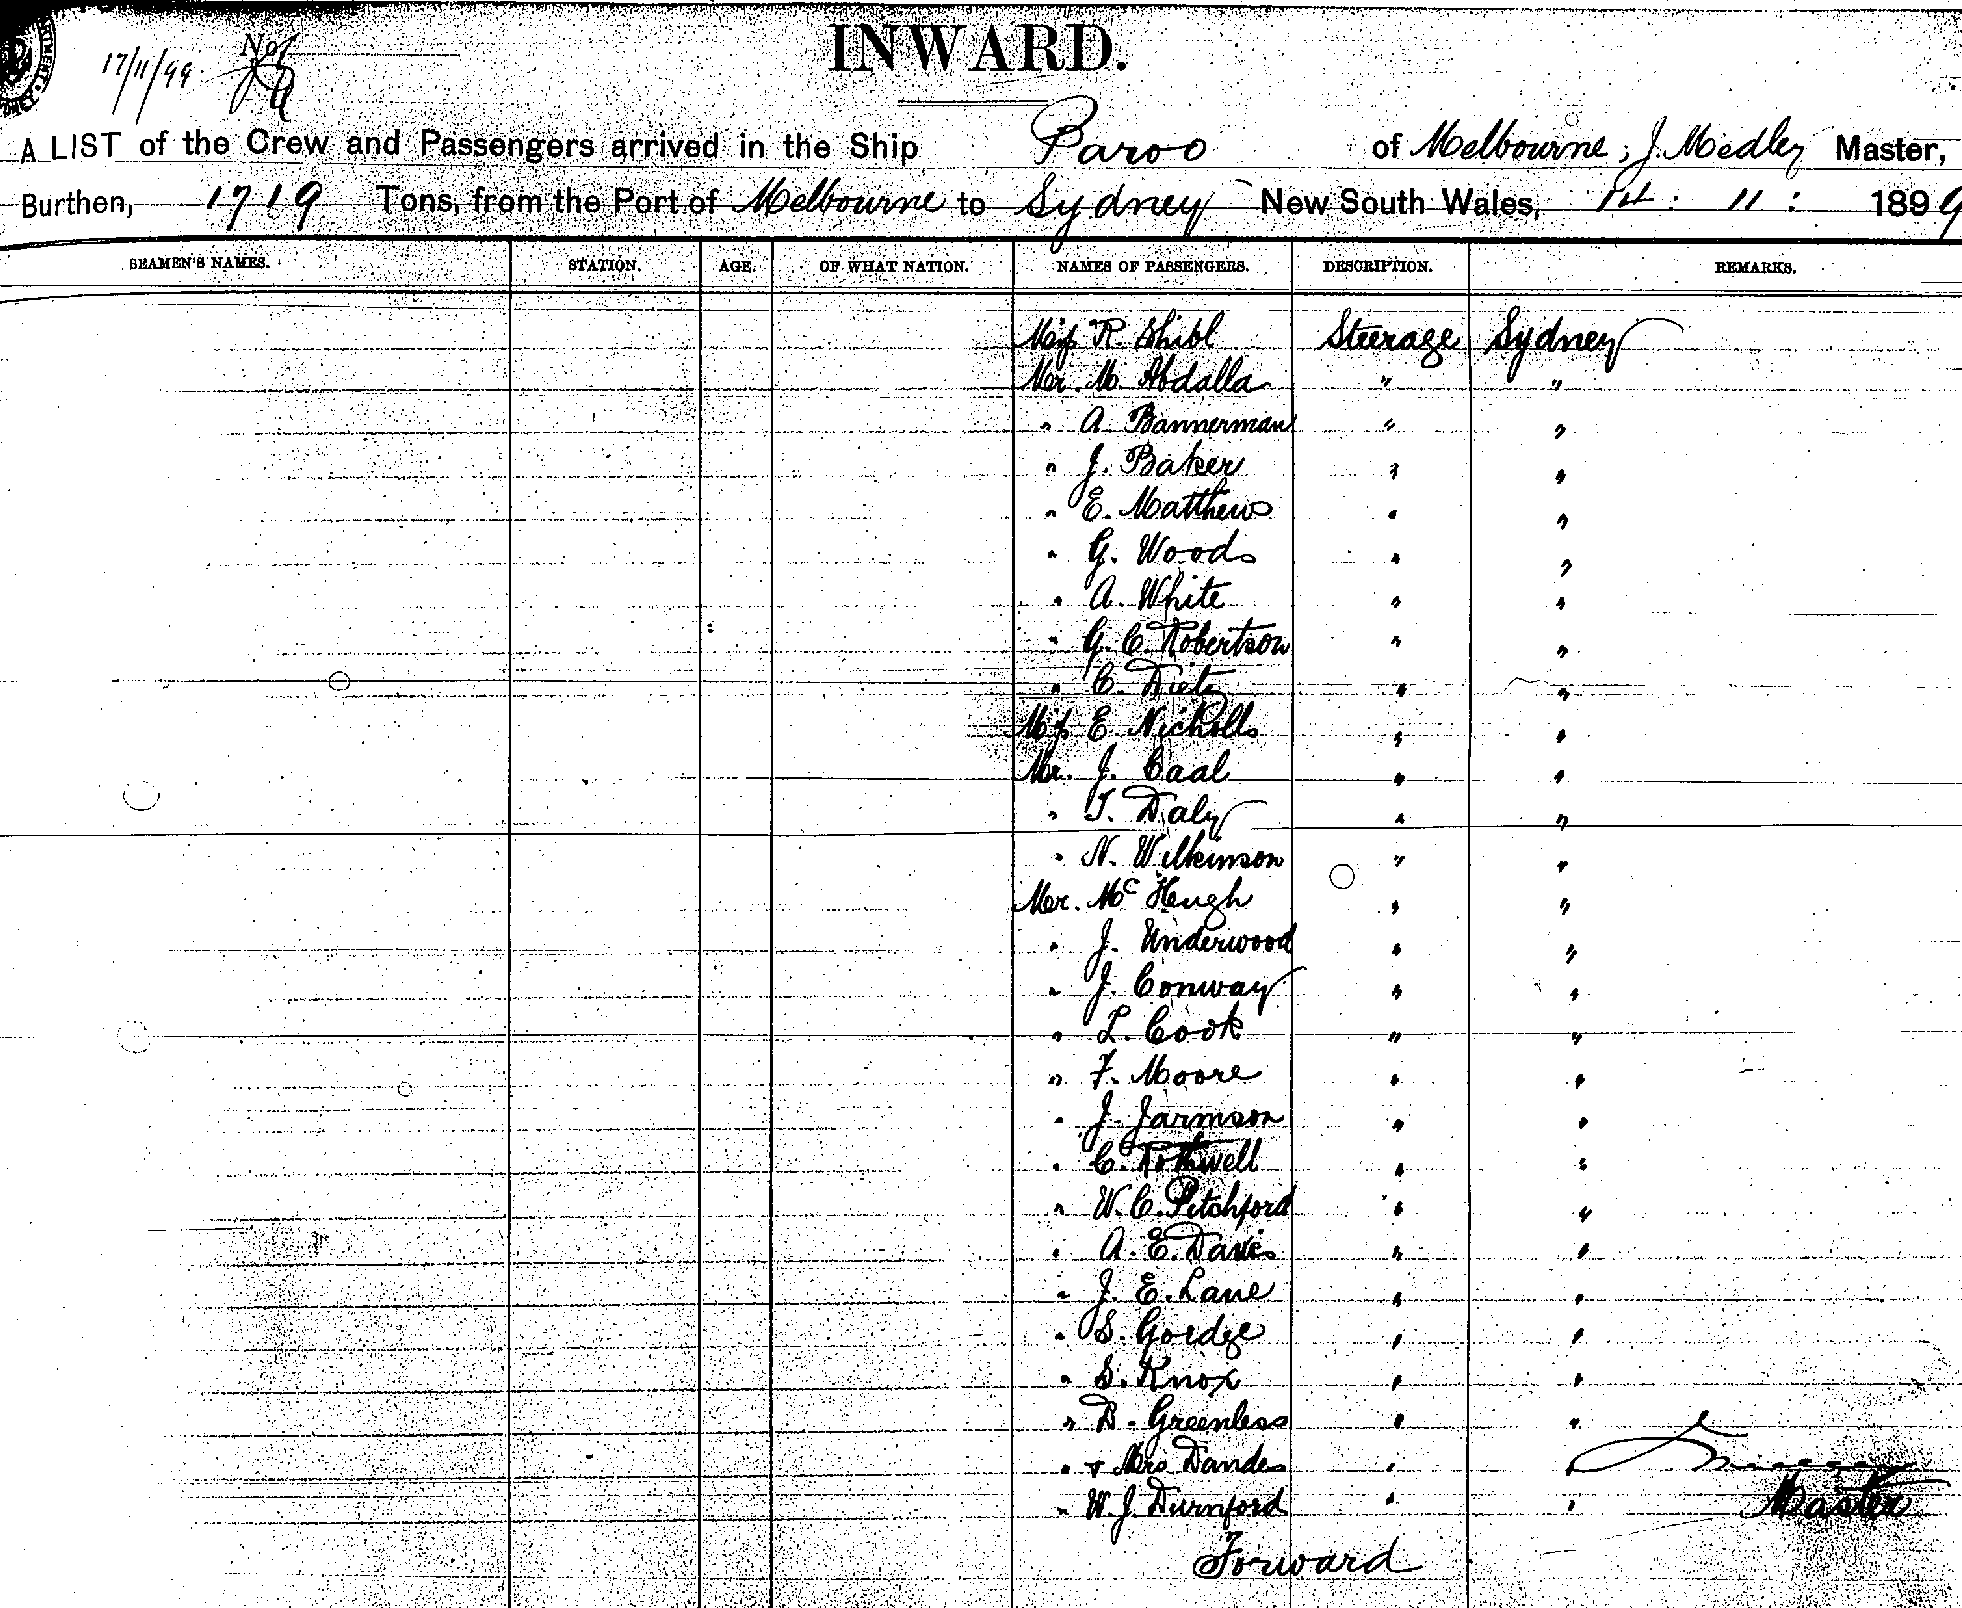 17/11/99
INWARD.
A LIST of the Crew and Passengers arrived in the Ship Paroo of Melbourne, J. Medley Master,
Burthen, 1719 Tons, from the Port of Melbourne to Sydney New South Wales, 14 : 11 : 1899
SEAMEN'S NAMES. STATION. AGE. OF WHAT NATION. NAMES OF PASSENGERS. DESCRIPTION. REMARKS.
Miss R. Shibl Steerage Sydney
Mr. M. Abdalla " "
" A. Bannerman " "
" J. Baker " "
" E. Matthews " "
" G. Woods " "
" A. White " "
" G. C. Robertson " "
" C. Dietz " "
Miss E. Nicholls " "
Mr. J. Caal " "
" T. Daly " "
" N. Wilkinson " "
Mr. McHeugh " "
" J. Underwood " "
" J. Conway " "
" L. Cook " "
" F. Moore " "
" J. Jarmson " "
" C. Rothwell " "
" W. C. Pitchford " "
" A. E. Davies " "
" J. E. Lane " "
" S. Goidge " "
" S. Knox " "
" D. Greenless " "
" + Mrs Dandes " "
" W. J. Durnford " " Master
Forward